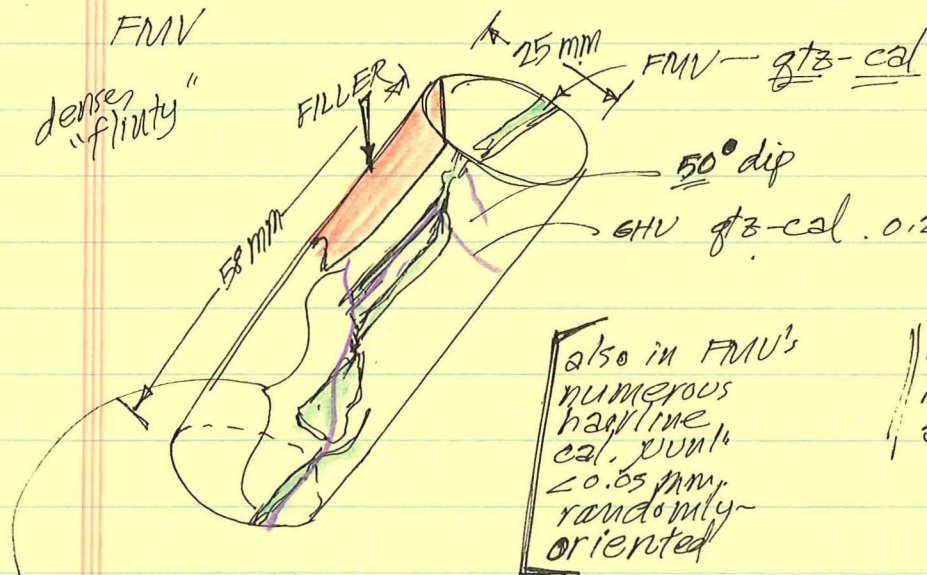 FMV
dense,
"flinty"
FILLER
25 mm
FMV — qtz-cal
50° dip
GHV qtz-cal. 0.2
58 mm
also in FMV's
numerous
hairline
cal.
<0.05 mm,
randomly-
oriented